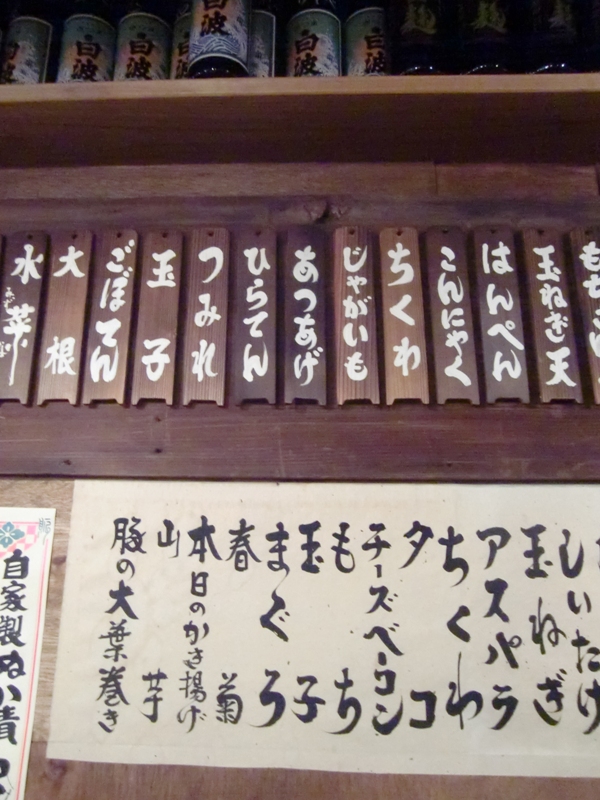 白波
白波
白波
白波
白波
白波
玉ねぎ天
はんぺん
こんにゃく
ちくわ
じゃがいも
あつあげ
ひらてん
つみれ
玉子
ごぼてん
大根
しいたけ
玉ねぎ
アスパラ
ちくわ
タコ
チーズベーコン
もち
玉子
まぐろ
春菊
本日のかき揚げ
山芋
豚の大葉巻き
自家製ぬか漬